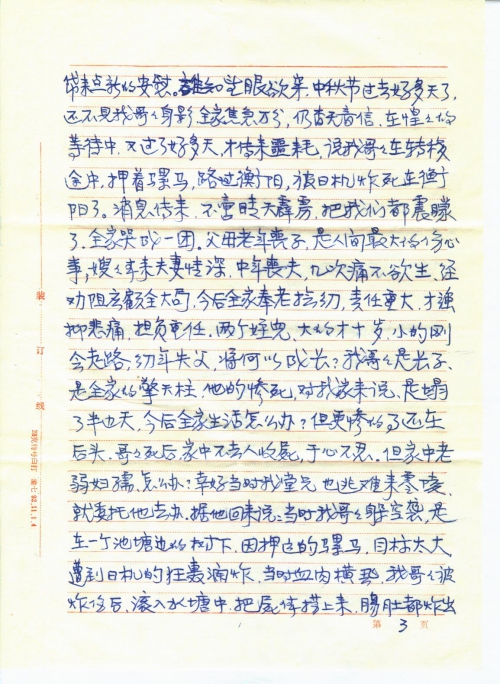 带来点新的安慰。谁知望眼欲穿，中秋节过去好多天了，
还不见我哥々身影，全家焦急万分，仍杳无音信。在惶々的
等待中，又过了好多天，才传来噩耗，说我哥々在转栈
途中，押着骡马，路过衡阳，被日机炸死在衡
阳了。消息传来，不啻晴天霹雳，把我们都震矇
了，全家哭成一团。父母老年丧子，是人间最大的伤心
事，嫂々本来夫妻情深，中年丧夫，几次痛不欲生，经
劝阻应顾全大局，今后全家奉老抚幼，责任重大，才强
抑悲痛，担负重任。两个侄儿，大的才十岁，小的刚
会走路，幼年失父，将何以成长？我哥々是长子，
是全家的擎天柱，他的惨死，对我家来说，是塌
了半边天，今后全家生活怎么办？但更惨的事还在
后头，哥々死后，家中不去人收屍，于心不忍，但家中老
弱妇孺，怎么办？幸好当时我堂兄也逃难来零陵，
就委托他去办。据他回来说：当时我哥々躲空袭，是
在一个池塘边的树下，因押运的骡马，目标太大
遭到日机的狂轰滥炸，当时血肉横飞，我哥々被
炸伤后，滚入水塘中，把屍体捞上来，腸肚都炸出
第 3 页
装 订 线